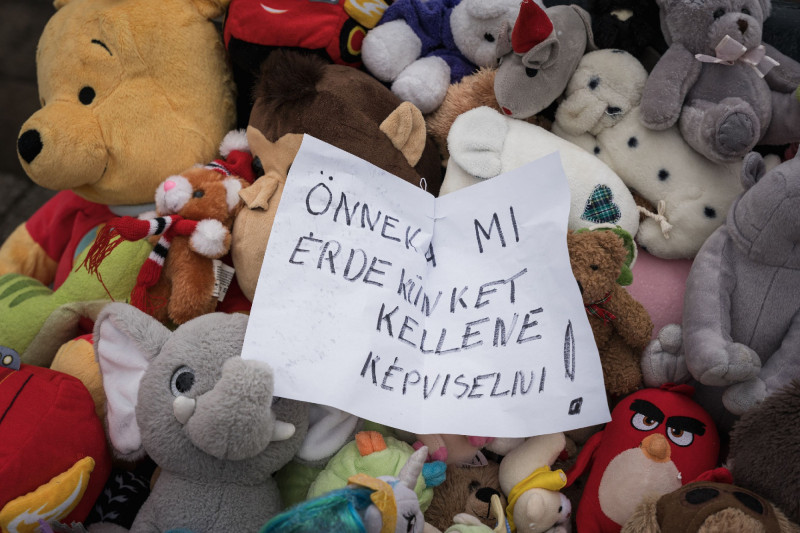 ÖNNEK A MI
ÉRDEKÜNKET
KELLENE
KÉPVISELNI!